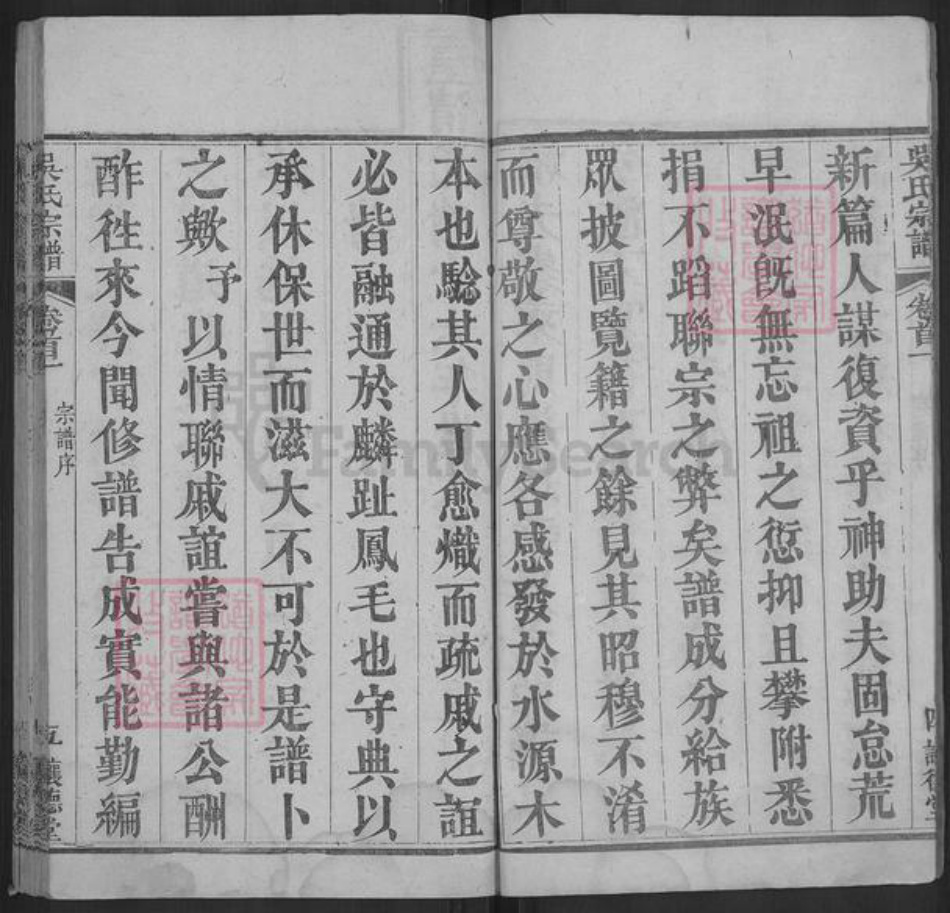 吳氏宗譜
卷首一
四
新篇人謀復資乎神助夫固怠荒
早泯旣無忘祖之愆抑且攀附悉
捐不蹈聯宗之弊矣譜成分給族
眾披圖覽籍之餘見其昭穆不淆
而尊敬之心應各感發於水源木
本也騐其人丁愈熾而疏戚之誼
必皆融通於麟趾鳳毛也守典以
承休保世而滋大不可於是譜卜
之歟予以情聯戚誼嘗與諸公酬
酢徃來今聞修譜告成實能勤編
吳氏宗譜
卷首一
宗譜序
五
讓德堂
FamilySearch